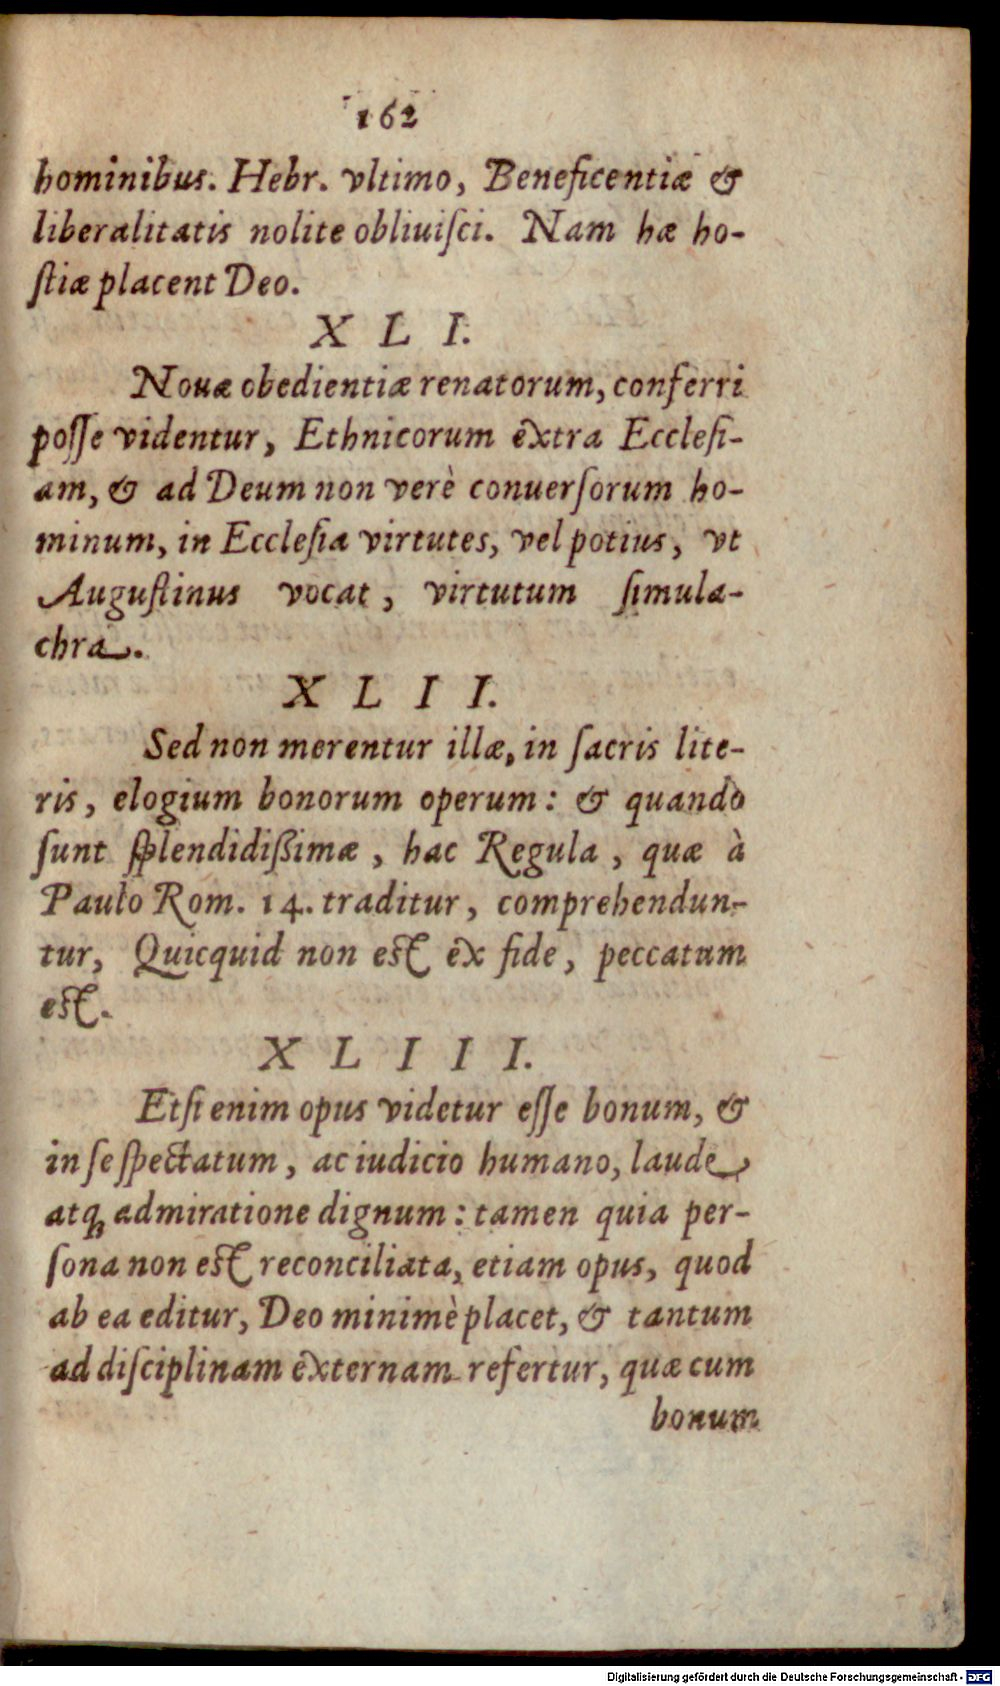 162
hominibus. Hebr. vltimo, Beneficentiæ &
liberalitatis nolite obliuiſci. Nam hæ ho-
ſtiæ placent Deo.
X L I.
Nouæ obedientiæ renatorum, conferri
poſſe videntur, Ethnicorum extra Eccleſi-
am, & ad Deum non verè conuerſorum ho-
minum, in Eccleſia virtutes, vel potius, vt
Auguſtinus vocat, virtutum ſimula-
chra.
X L I I.
Sed non merentur illæ, in ſacris lite-
ris, elogium bonorum operum: & quando
ſunt ſplendidißimæ, hac Regula, quæ à
Paulo Rom. 14. traditur, comprehendun-
tur, Quicquid non eſt ex fide, peccatum
eſt.
X L I I I.
Etſi enim opus videtur eſſe bonum, &
in ſe ſpectatum, ac iudicio humano, laude
atq; admiratione dignum: tamen quia per-
ſona non eſt reconciliata, etiam opus, quod
ab ea editur, Deo minimè placet, & tantum
ad diſciplinam externam refertur, quæ cum
bonum
Digitalisierung gefördert durch die Deutsche Forschungsgemeinschaft - DFG